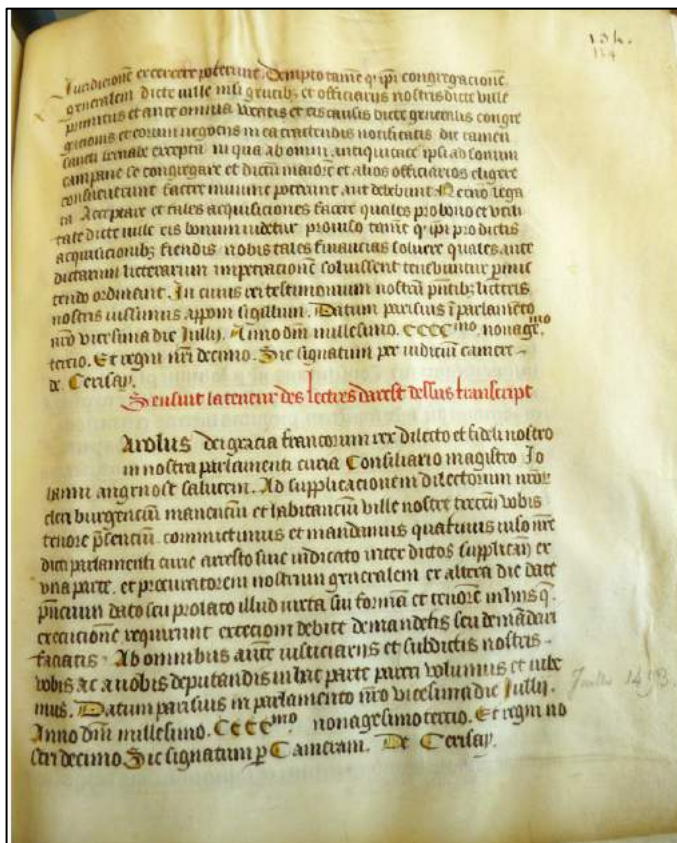 134.
124
Juridicionē exercere poterunt. Dempto tamē q' ip̄i congregacionē
generalem dicte ville nisi gentib; et officiariis nostris dicte ville
primitus et ante omnia vocatis et eis causis dicte generalis congre
gacionis et eorum negociis in ea tractandis notificatis die tamen
sancti excepta in qua ab omni antiquitate ip̄i ad sonum
campane se congregare et dictū maiorē et alios officiarios eligere
consueverunt facere minime poterunt aut debebunt. Necnō lega
ta Acceptare et tales acquisiciones facere quales pro bono et utili
tate dicte ville eis bonum videtur proviso tamē q' ip̄i pro dictis
acquisicionib; fiendis nobis tales financias solvere quales ante
dictarum litterarum impetracionē solvissent tenebuntur
ordinent. In cuius rei testimonium nostrū pn̄tib; litteris
nostris iussimus apponi sigillum. Datum parisius ī parlamēto
nr̄o vicesima die Jullij. Anno dn̄i millesimo. CCCC mo. nonage mo
tercio. Et regni nr̄i decimo. Sic signatum per iudiciū camere -
de Cerisay.
Sensuit la teneur des lectres darest dessus transcript
Arolus dei gracia francorum rex dilecto et fideli nostro
in nostra parlamenti curia Consiliario magistro Jo
hanni angenost salutem. Ad supplicacionem dilectorum nr̄oꝝ
burgenciū manenciū et habitanciū ville nostre trecen̄ vobis
tenore p̄senciū committimus et mandamus quatinus viso nr̄e
dicti parlamenti curie arresto sive iudicato inter dictos supplican̄ ex
una parte. et procuratorem nostrum generalem ex altera die date
pn̄cium dato seu prolato illud iuxta sui formā et tenorē in hiis q.
execucionē requirunt execucioni debite demandetis seu demādari
faciatis. Ab omnibus autē iusticiariis et subditis nostris -
vobis ac a vobis deputandis in hac parte pareri volumus et iube
mus. Datum parisius in parlamento nr̄o vicesima die Jullij.
Anno dn̄i millesimo. CCCC mo nonagesimo tercio. Et regni no
stri decimo. Sic signatum ꝑ Cameram. De Cerisay.
Juillet 1493.